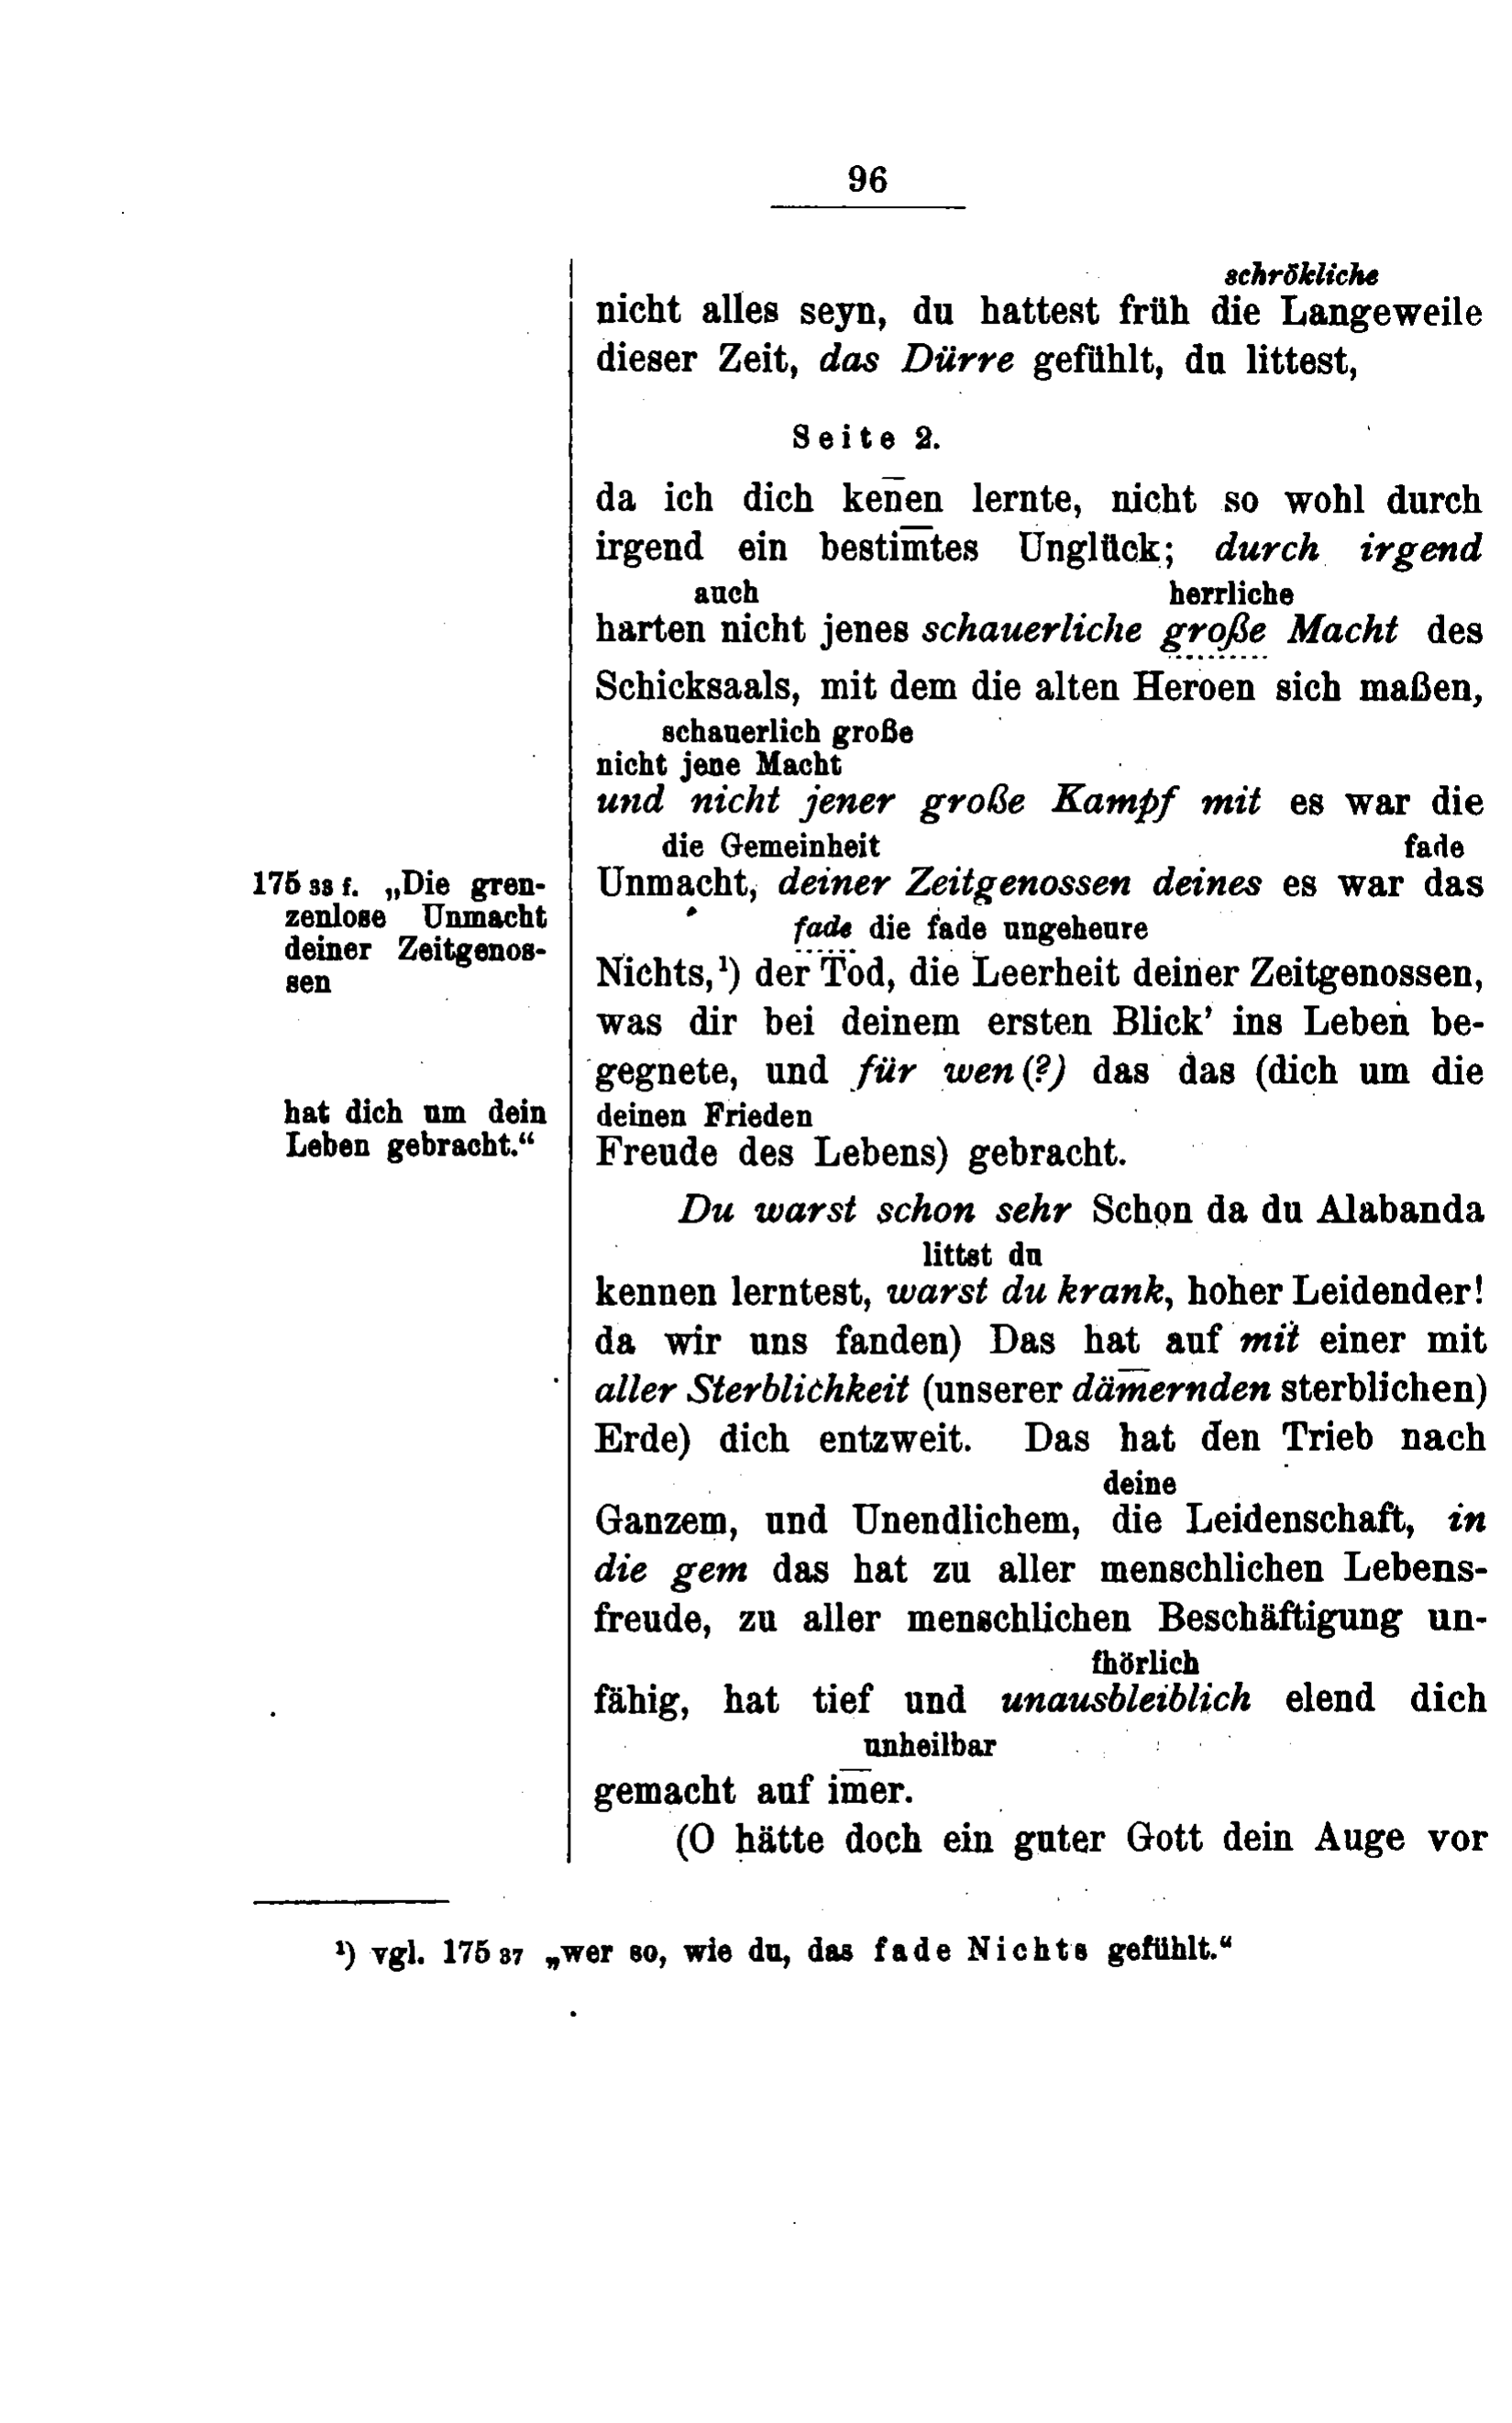 96
schrökliche
nicht alles seyn, du hattest früh die Langeweile
dieser Zeit, das Dürre gefühlt, du littest,
Seite 2.
da ich dich ken̄en lernte, nicht so wohl durch
irgend ein bestim̄tes Unglück; durch irgend
auch herrliche
harten nicht jenes schauerliche große Macht des
Schicksaals, mit dem die alten Heroen sich maßen,
schauerlich große
nicht jene Macht
und nicht jener große Kampf mit es war die
die Gemeinheit fade
Unmacht, deiner Zeitgenossen deines es war das
fade die fade ungeheure
Nichts,¹) der Tod, die Leerheit deiner Zeitgenossen,
was dir bei deinem ersten Blick’ ins Leben be-
gegnete, und für wen (?) das das (dich um die
deinen Frieden
Freude des Lebens) gebracht.
Du warst schon sehr Schon da du Alabanda
littst du
kennen lerntest, warst du krank, hoher Leidender!
da wir uns fanden) Das hat auf mit einer mit
aller Sterblichkeit (unserer däm̄ernden sterblichen)
Erde) dich entzweit. Das hat den Trieb nach
deine
Ganzem, und Unendlichem, die Leidenschaft, in
die gem das hat zu aller menschlichen Lebens-
freude, zu aller menschlichen Beschäftigung un-
fhörlich
fähig, hat tief und unausbleiblich elend dich
unheilbar
gemacht auf im̄er.
(O hätte doch ein guter Gott dein Auge vor
175 33 f. „Die gren-
zenlose Unmacht
deiner Zeitgenos-
sen
hat dich um dein
Leben gebracht.“
¹) vgl. 175 37 „wer so, wie du, das fade Nichts gefühlt.“